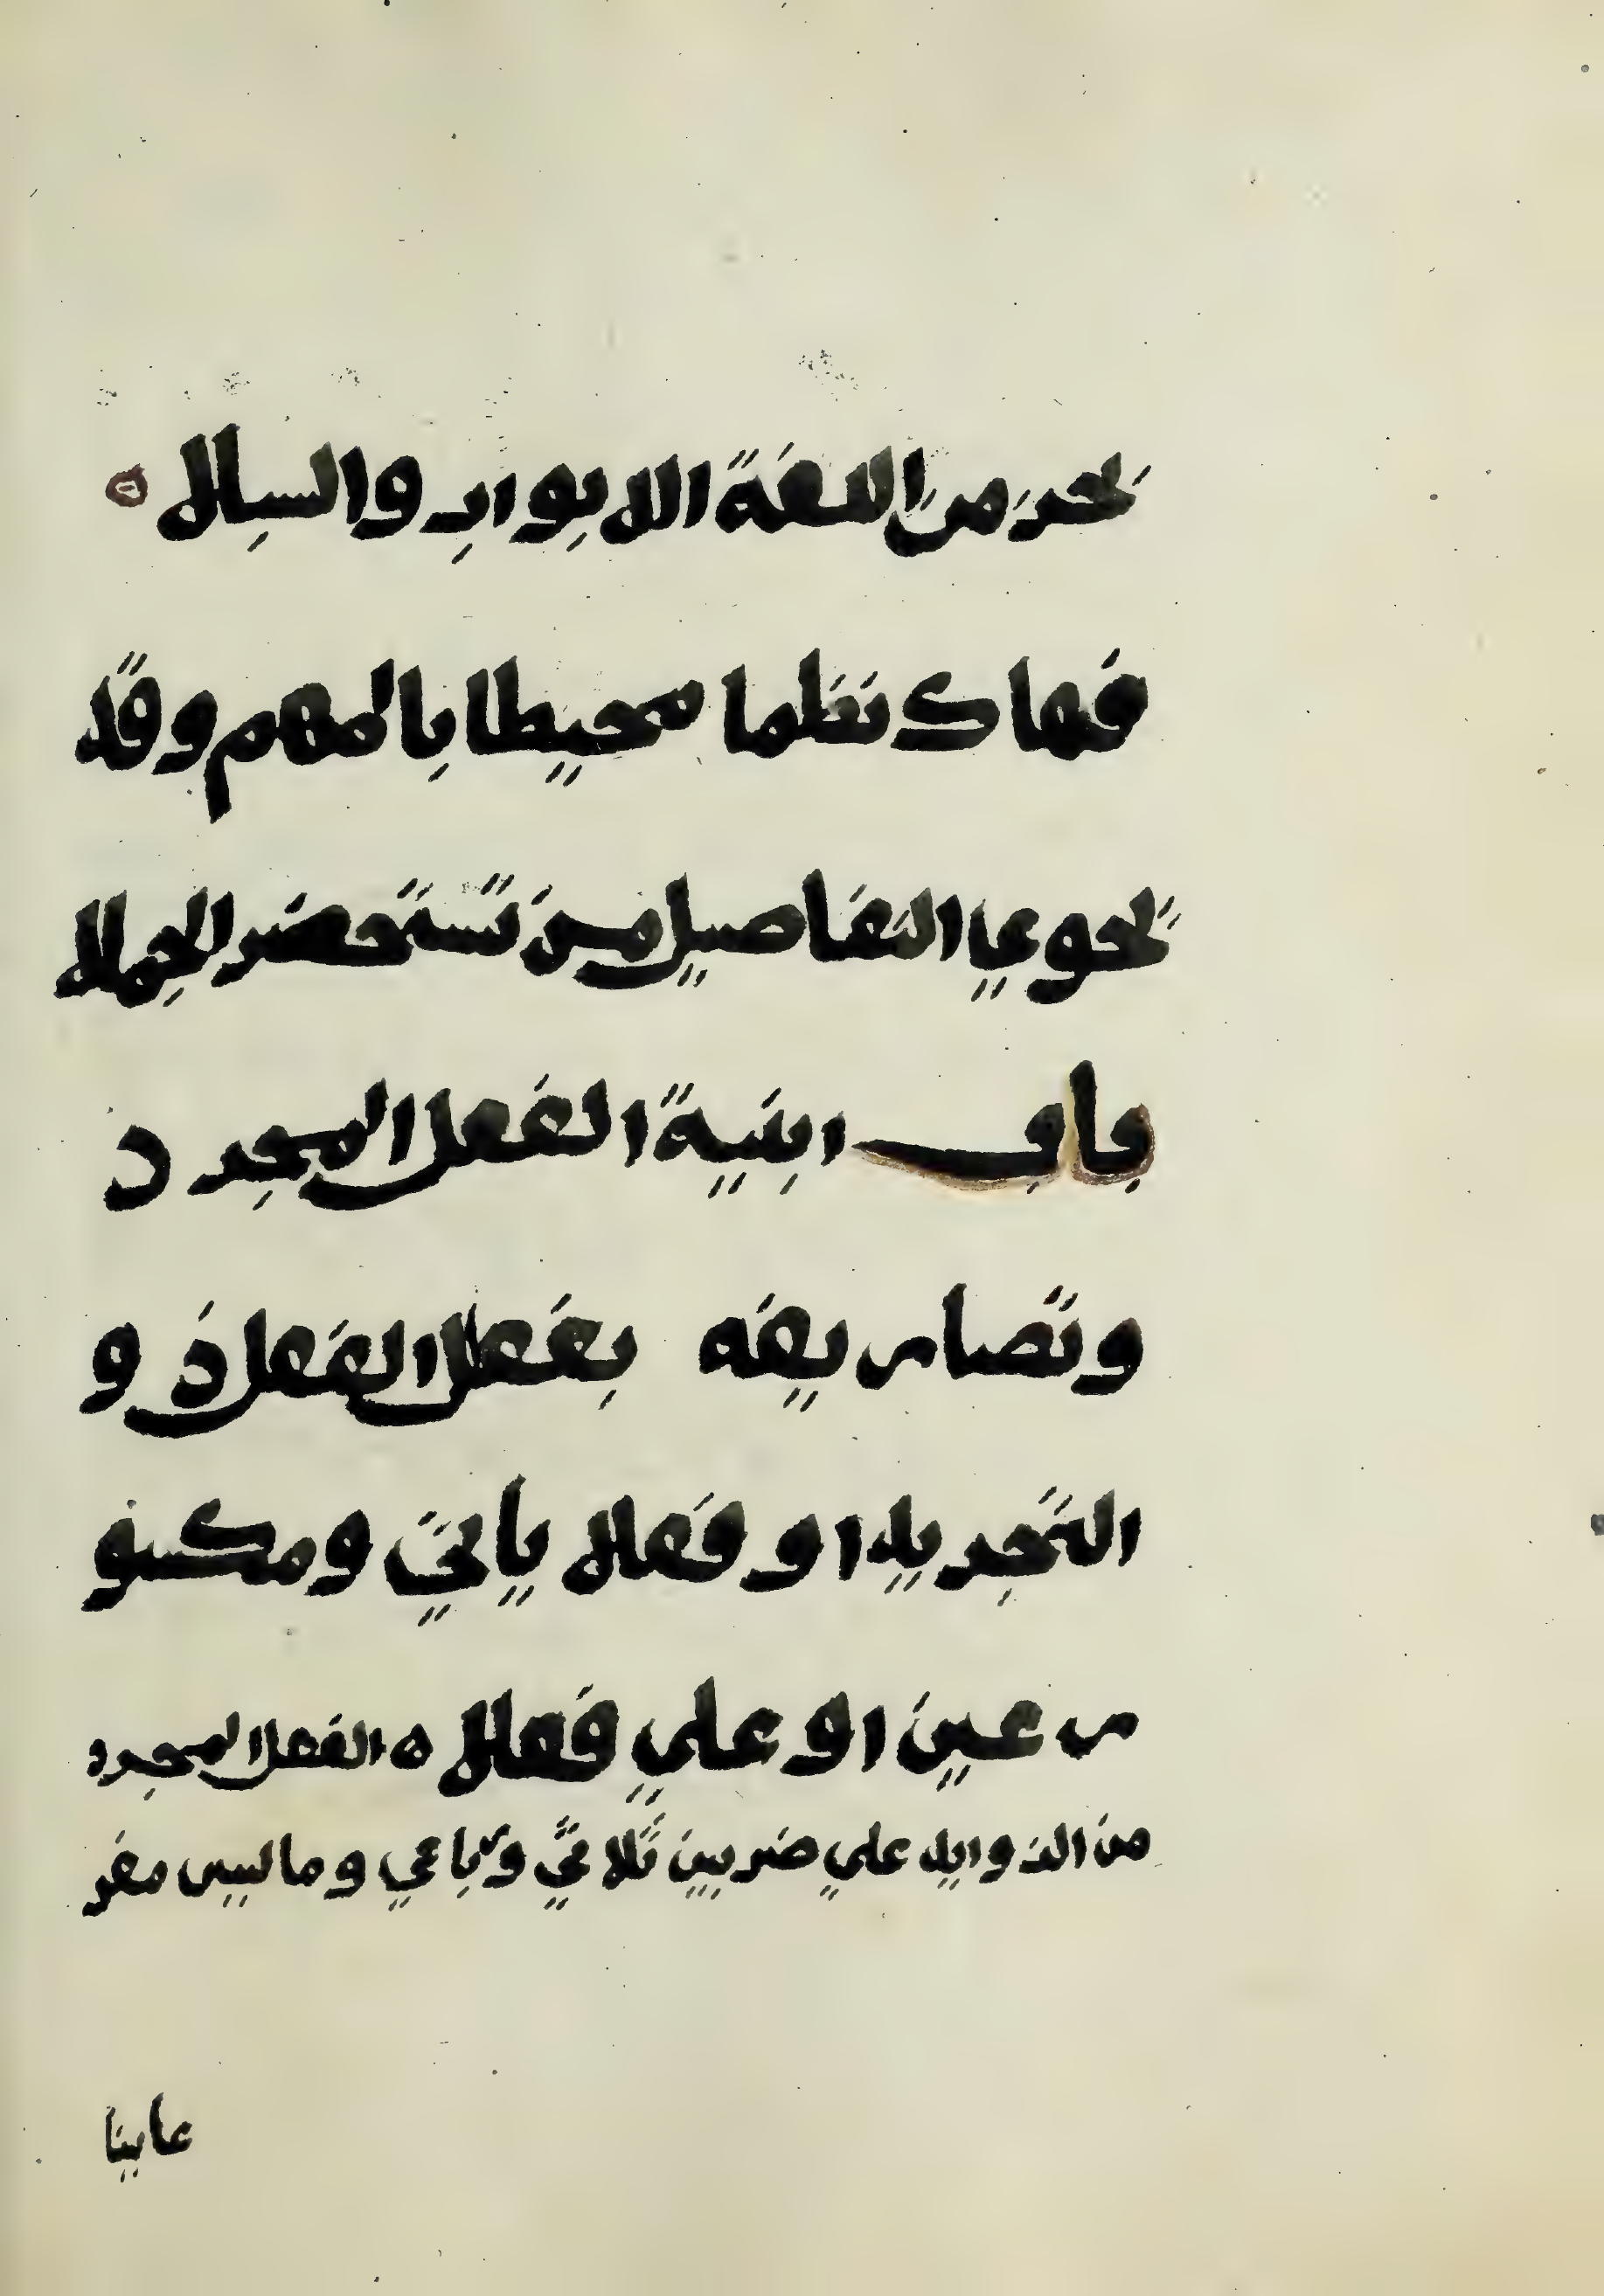 تحز من اللغة الابواب والسبلا
فهاك نظما محيطا بالمهم وقد
يحوي التفاصيل من يستحضر الجملا
باب ابنية الفعل المجرد
وتصاريفه بفعلل الفعل ذو
التجريد او فعلا ياتي ومكسو
ر عين او علي فعلا ه الفعل المجرد
من الزوايد علي ضربين ثلاثي ورباعي وما ليس مفر
عاينا